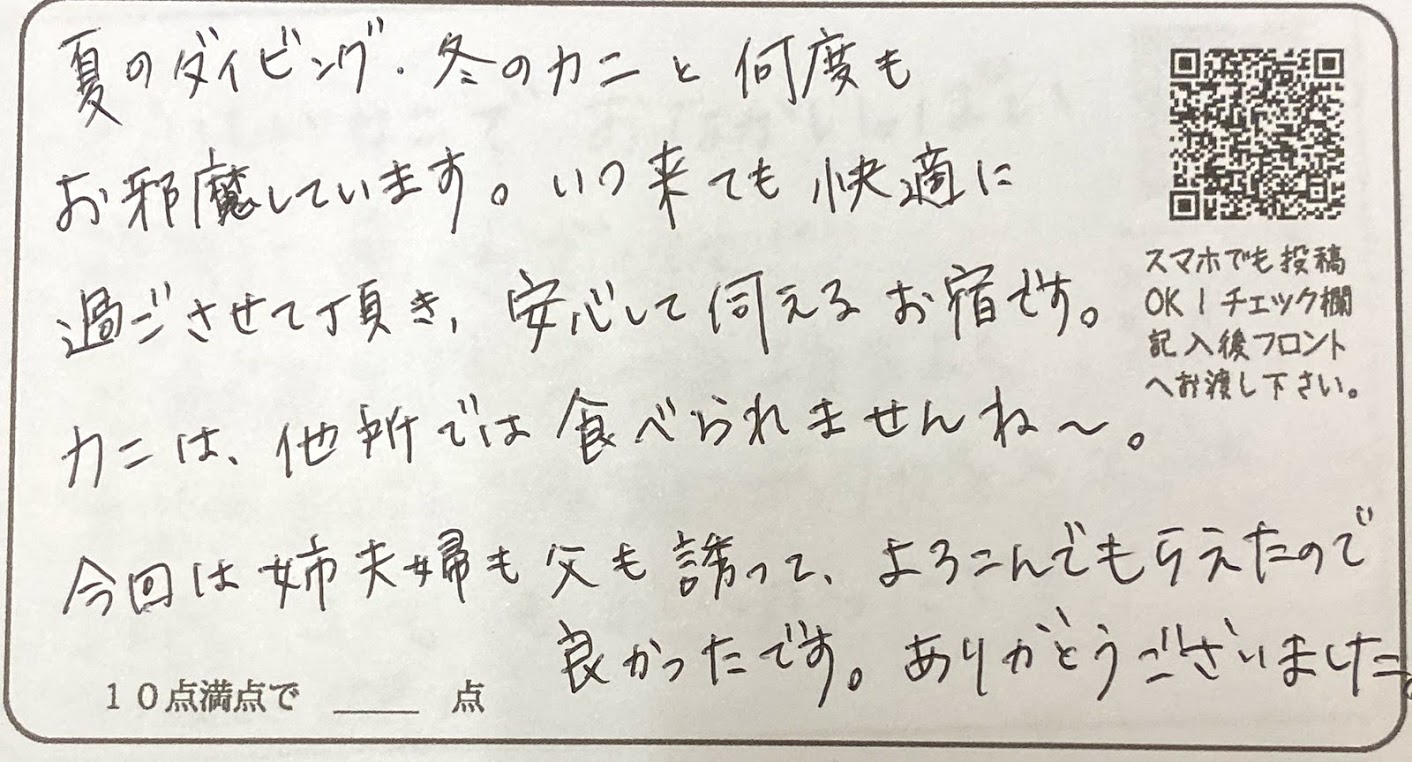 夏のダイビング・冬のカニと何度も
お邪魔しています。いつ来ても快適に
過ごさせて頂き、安心して伺えるお宿です。
カニは、他所では食べられませんね〜。
今回は姉夫婦も父も誘って、よろこんでもらえたので
良かったです。ありがとうございました。
スマホでも投稿
OK！チェック欄
記入後フロント
へお渡し下さい。
10点満点で ____ 点